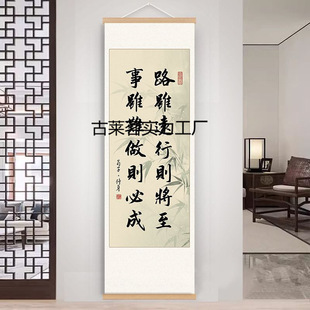 路雖遠行則將至
事雖難做則必成
荀子·修身
古莱 实力工厂